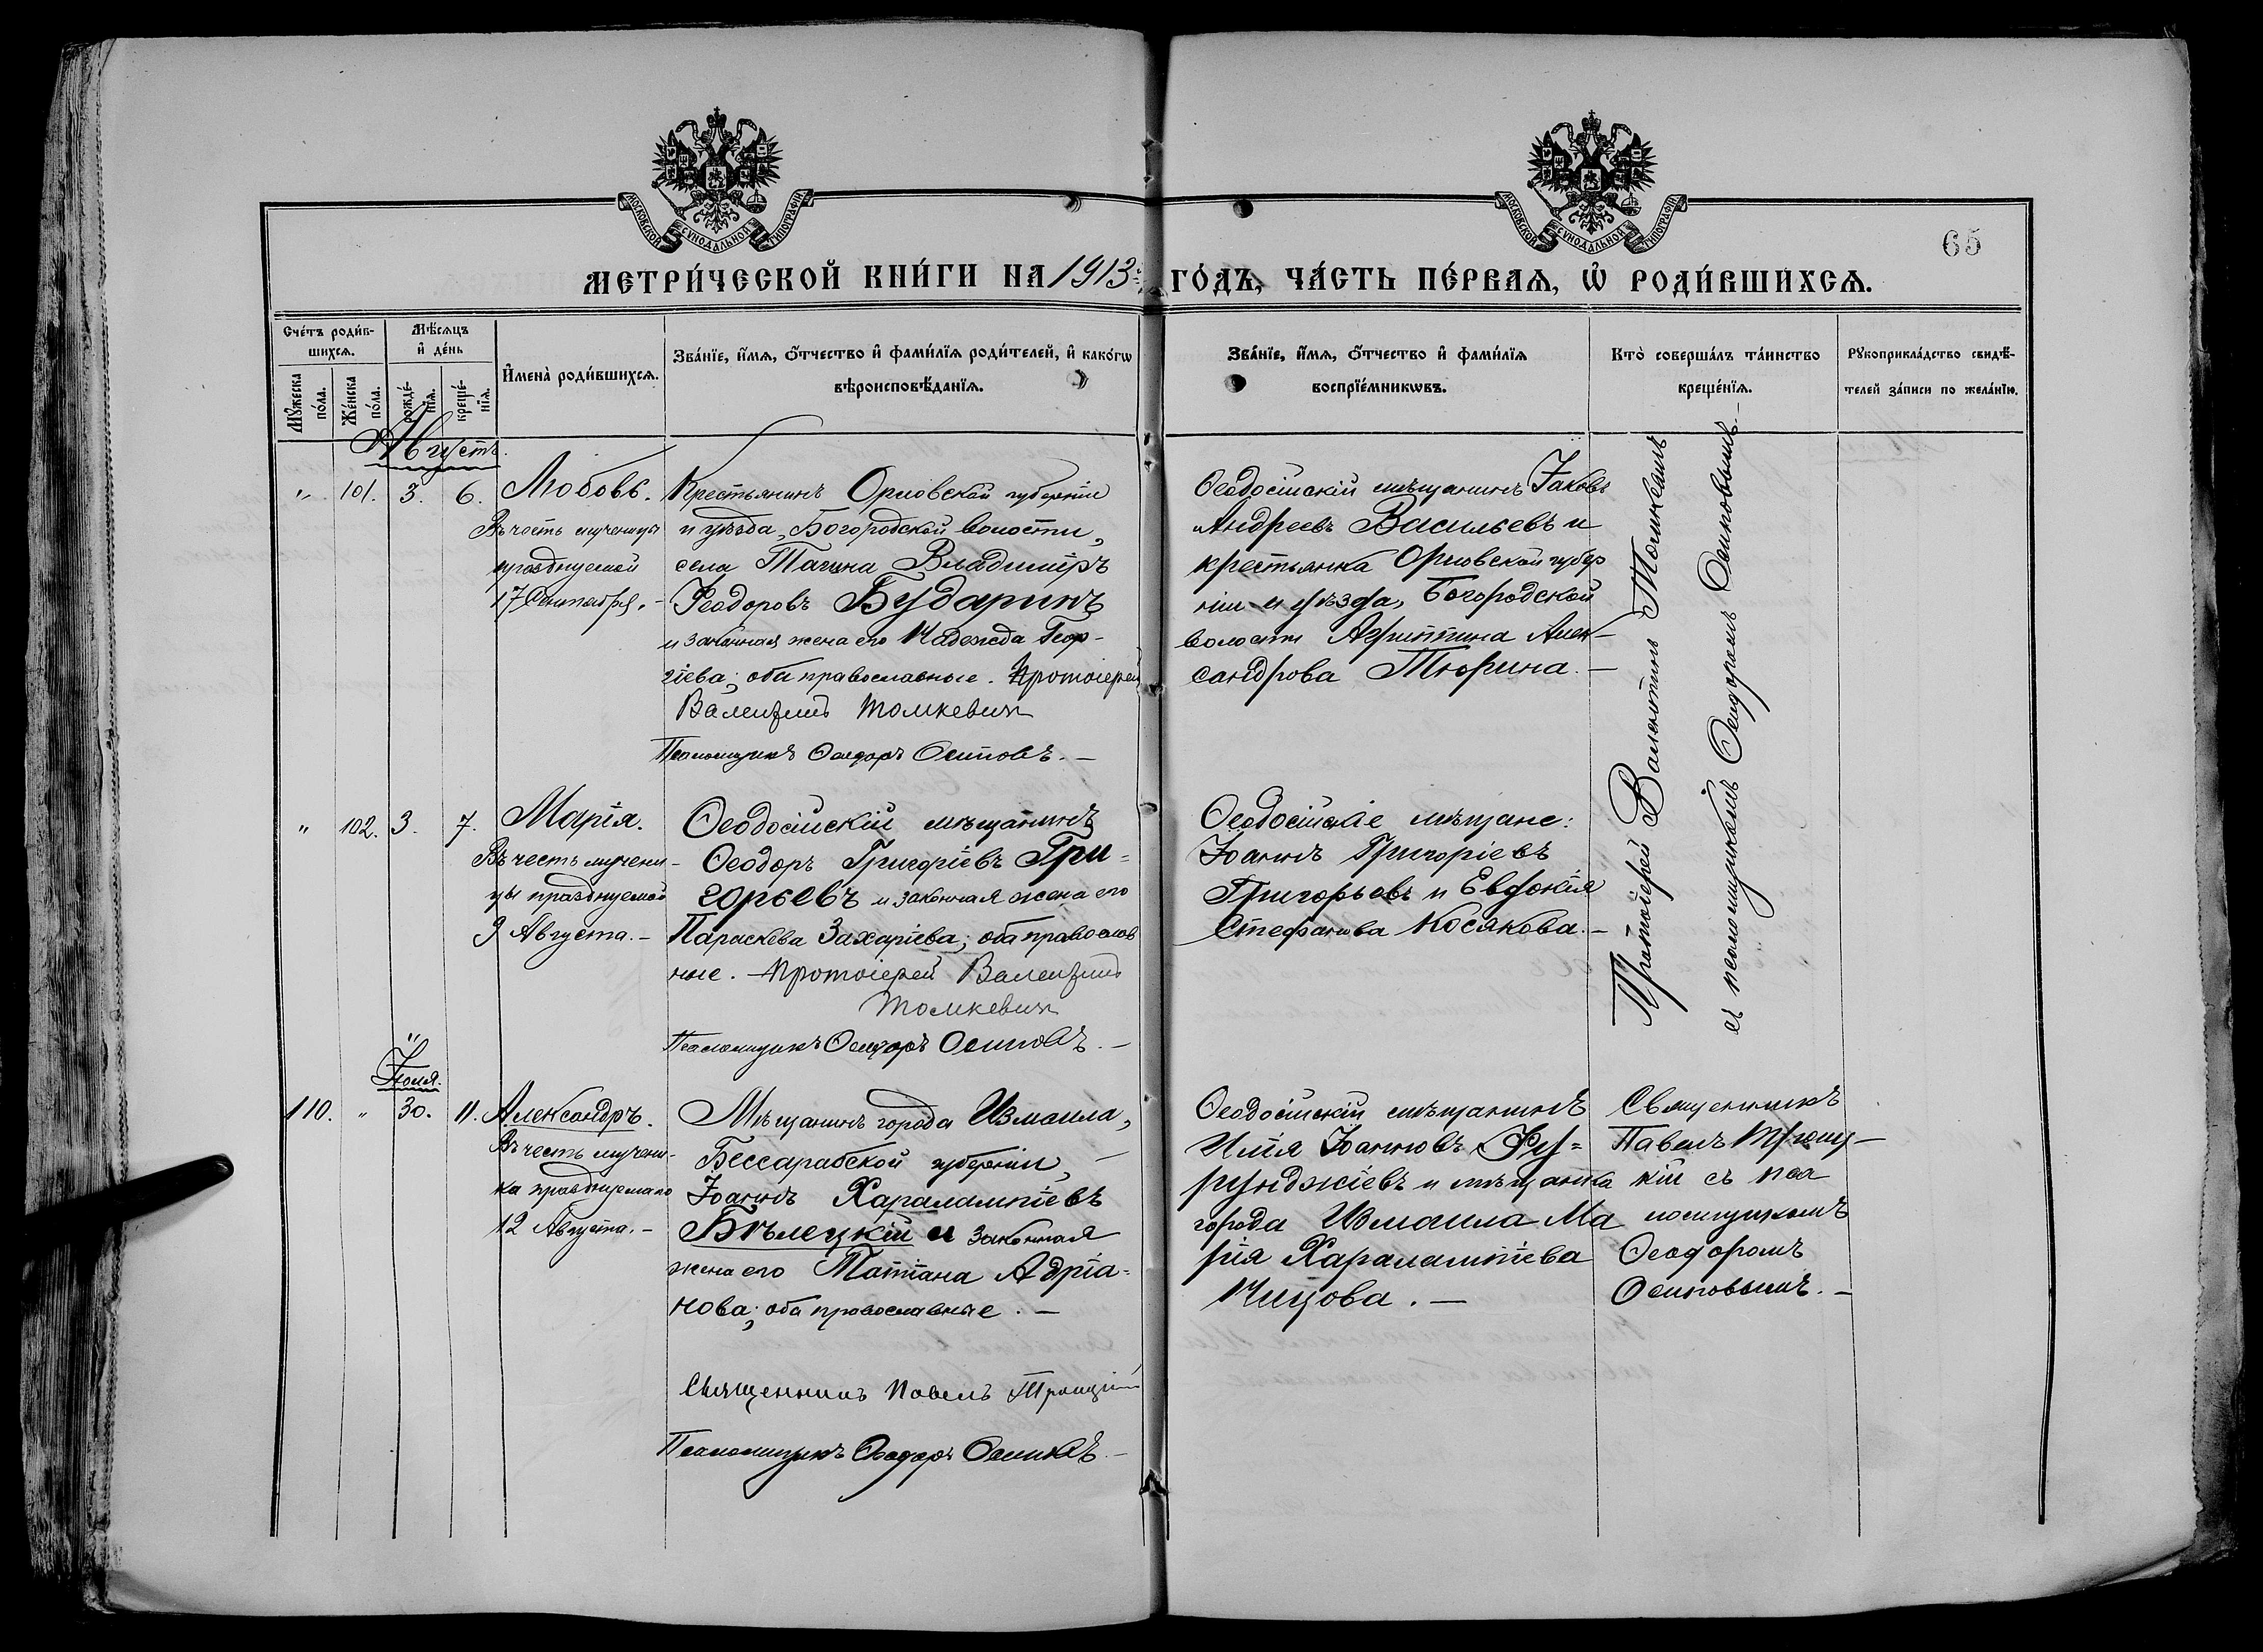 МОСКОВСКОЙ СУНОДАЛЬНОЙ ТИПОГРАФІИ
МОСКОВСКОЙ СУНОДАЛЬНОЙ ТИПОГРАФІИ
65
МЕТРИ́ЧЕСКОЙ КНИ́ГИ НА 1913 ГО́ДЪ, ЧА́СТЬ ПЕ́РВАѦ, Ѡ҆ РОДИ́ВШИХСѦ.
Сче́тъ роди́в-
шихсѧ.
Мѣ́сѧцъ
и҆ де́нь
И҆мена̀ роди́вшихсѧ.
Зва́нїе, и҆́мѧ, ѻ҆́тчество и҆ фами́лїѧ роди́телей, и҆ како́гѡ
вѣроисповѣ́данїѧ.
Зва́нїе, и҆́мѧ, ѻ҆́тчество и҆ фами́лїѧ
воспрїе́мникѡвъ.
Кто̀ соверша́лъ та́инство
креще́нїѧ.
Рꙋкоприкла́дство свидѣ́-
телей за́писи по жела́нїю.
Мꙋ́жеска
по́ла.
Же́нска
по́ла.
рожде́-
нїѧ.
креще́-
нїѧ.
Августъ.
" 101. 3. 6. Любовь.
Въ честь мученицы
празднуемой
17 Сентября. -
Крестьянинъ Орловской губерніи
и уѣзда, Богородской волости,
села Тагина Владимiръ
Ѳеодоровъ Бударинъ
и законная жена его Надежда Геор-
гіева; оба православные. Протоіерей
Валентинъ Томкевич
Псаломщикъ Ѳеодоръ Осиповъ. -
Ѳеодосійскій мѣщанинъ Іаковъ
Андреевъ Васильевъ и
крестьянка Орловской губер
ніи и уѣзда, Богородской
волости Агриппина Алек-
сандрова Тюрина. -
Протоіерей Валентинъ Томкевичъ
съ псаломщикомъ Ѳеодоромъ Осиповымъ. -
" 102. 3. 7. Марія.
Въ честь мучени-
цы празднуемой
9 Августа. -
Ѳеодосійскій мѣщанинъ
Ѳеодоръ Григоріевъ Гри=
горьевъ и законная жена его
Параскева Захаріева; оба православ
ные. - Протоіерей Валентинъ
Томкевич
Псаломщикъ Ѳеодоръ Осиповъ. -
Ѳеодосійскіе мѣщане:
Іоаннъ Григоріевъ
Григорьевъ и Евдокія
Стефанова Косякова. -
Іюля.
110. " 30. 11. Александръ.
Въ честь мучени-
ка празднуемаго
12 Августа. -
Мѣщанинъ города Измаила,
Бессарабской губерніи, -
Іоаннъ Харалампіевъ
Бѣлецкій и законная
жена его Татіана Адріа-
нова; оба православные. -
Священникъ Павелъ Троицкій
Псаломщикъ Ѳеодоръ Осиповъ. -
Ѳеодосійскій мѣщанинъ
Илія Іоанновъ Фу=
рунджіевъ и мѣщанка
города Измаила Ма
рія Харалампіева
Священникъ
Павелъ Троиц-
кій съ пса
ломщикомъ
Ѳеодоромъ
Осиповымъ. -